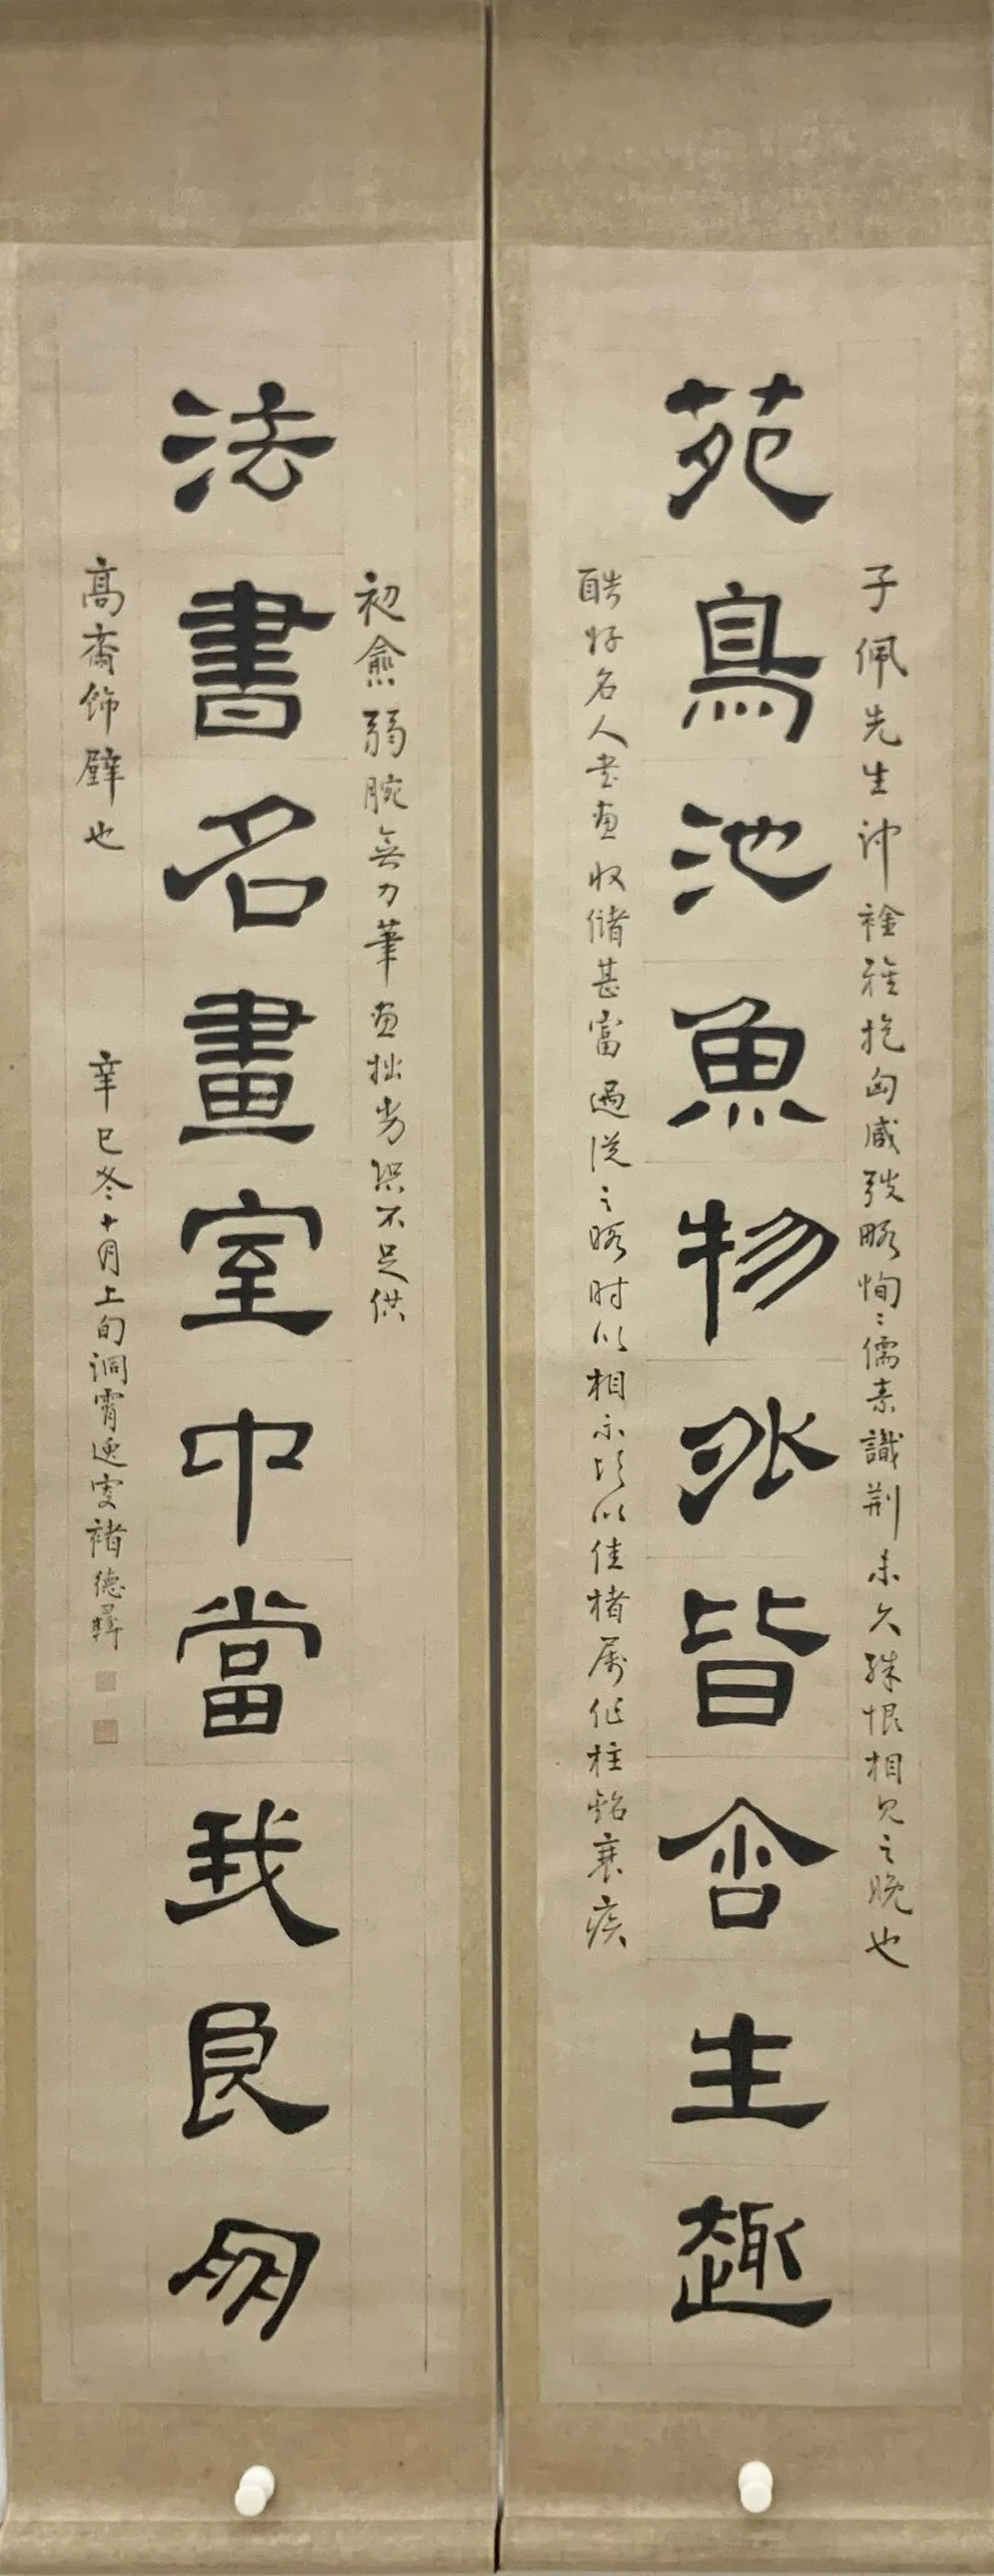 子佩先生沖襟雅抱匈臧弢略恂〻儒素識荆未久殊恨相見之晚也
苑鳥池魚物外皆含生趣
酷好名人書畫收儲甚富過從之暇时以相示頃以佳楮属作柱銘衰疾
初愈弱腕無力筆畫拙劣深不足供
法書名畫室中當我良朋
高齋飾壁也 辛巳冬十月上旬洞霄逸叟褚德彝